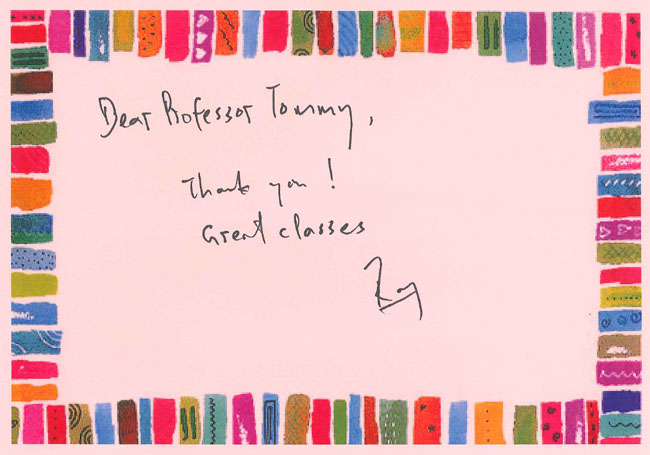 Dear Professor Tommy,
Thank you!
Great classes